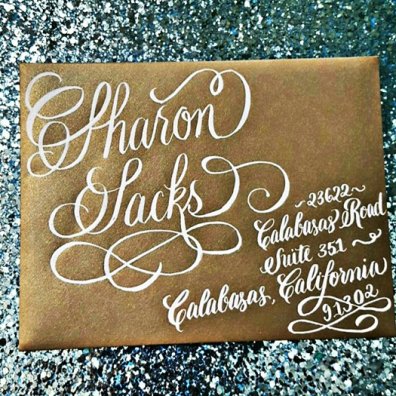 Sharon
Sacks
~23622~
Calabasas Road
Suite 351 ~
Calabasas, California
91302